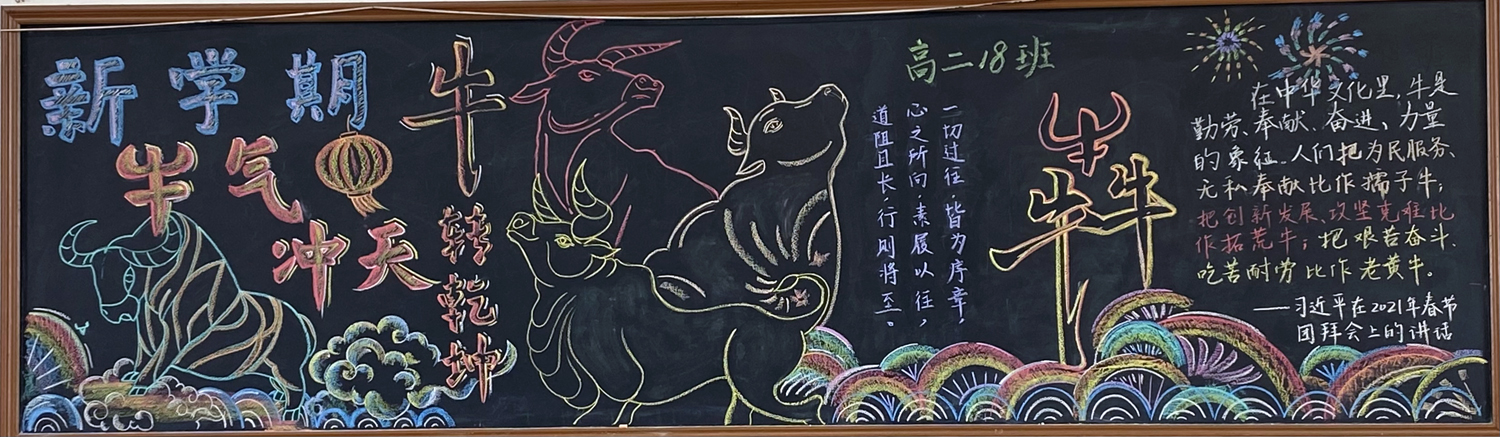 新学期
牛气
冲天
牛转乾坤
高二18班
一切过往,皆为序章,
心之所向,素履以往,
道阻且长,行则将至。
犇
在中华文化里,牛是
勤劳、奉献、奋进、力量
的象征。人们把为民服务、
无私奉献比作孺子牛;
把创新发展、攻坚克难比
作拓荒牛;把艰苦奋斗、
吃苦耐劳比作老黄牛。
——习近平在2021年春节
团拜会上的讲话